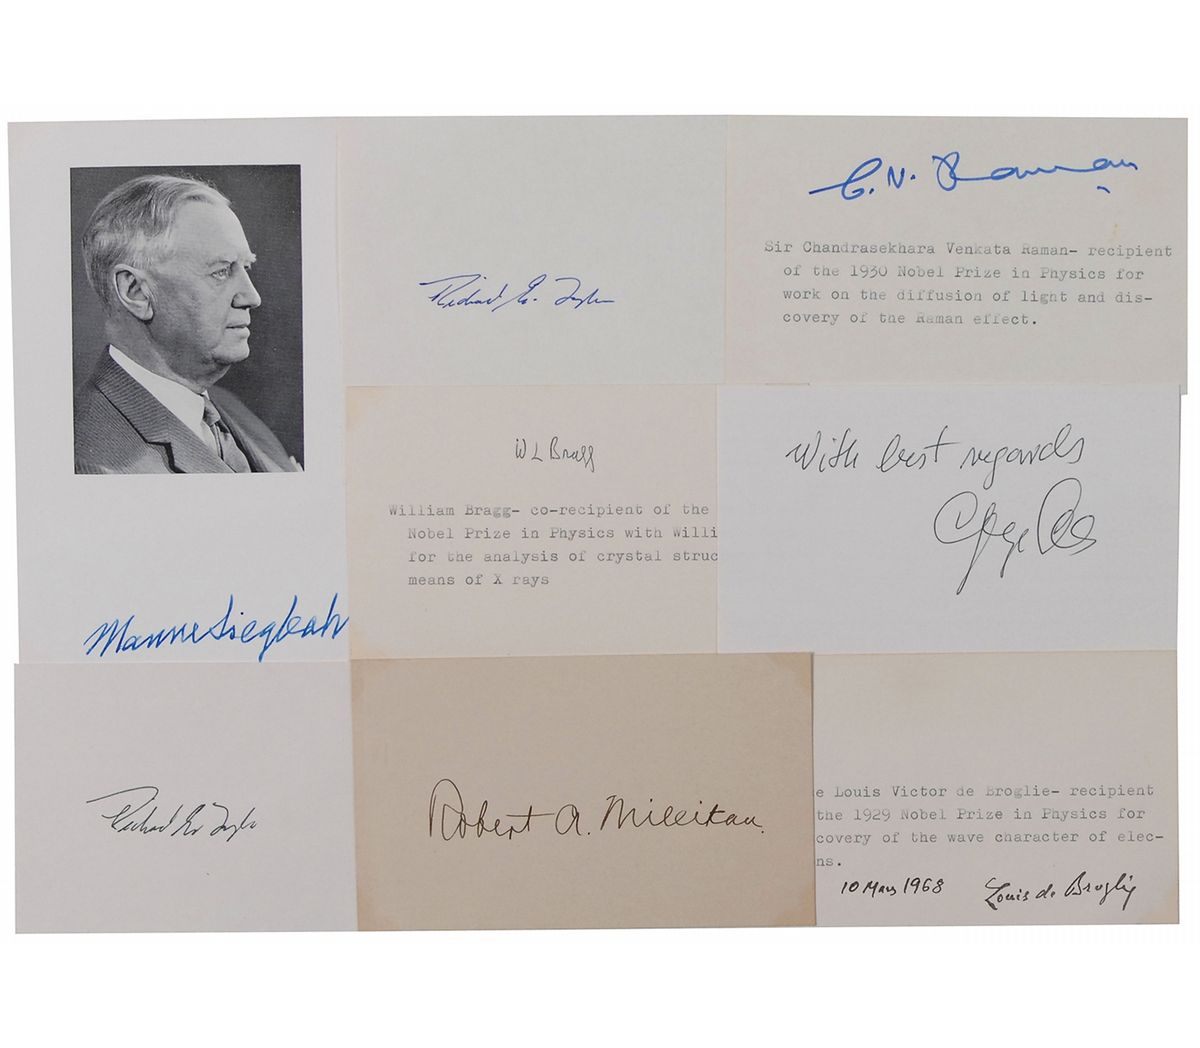 Manne Siegbahn
Richard E. Taylor
C. V. Raman
Sir Chandrasekhara Venkata Raman- recipient
of the 1930 Nobel Prize in Physics for
work on the diffusion of light and dis-
covery of the Raman effect.
W L Bragg
William Bragg- co-recipient of the
Nobel Prize in Physics with Willi
for the analysis of crystal struc
means of X rays
With best regards
Richard E. Taylor
Robert A. Millikan.
e Louis Victor de Broglie- recipient
the 1929 Nobel Prize in Physics for
covery of the wave character of elec-
ns.
10 Mars 1968
Louis de Broglie